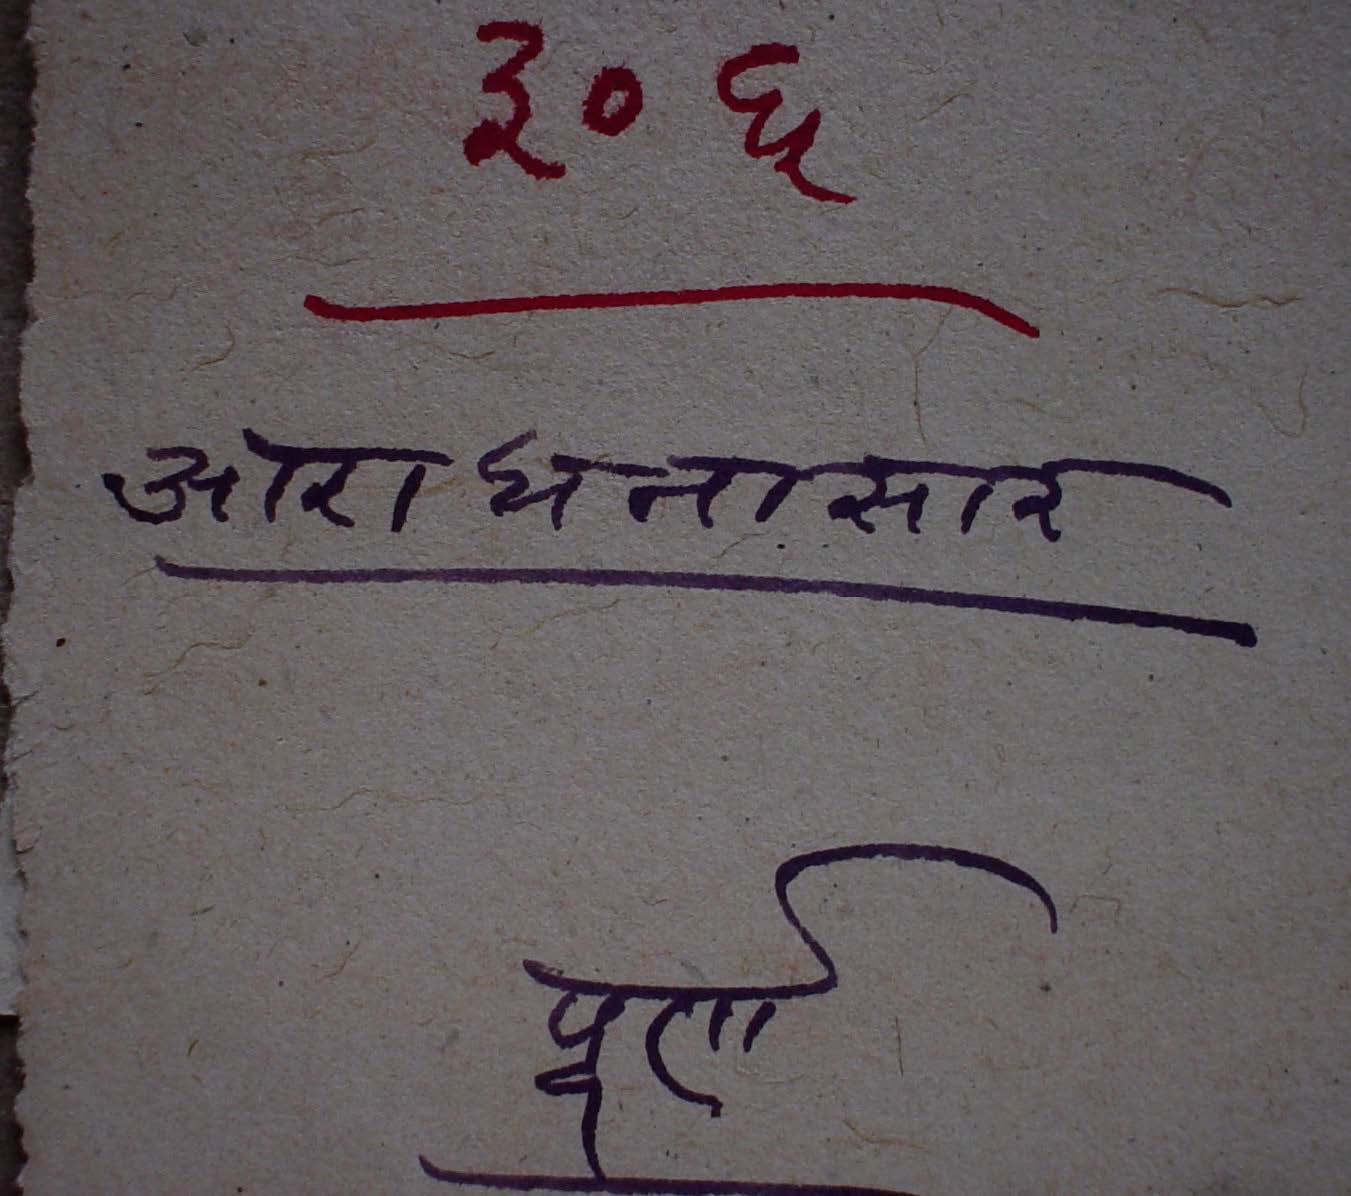 ३०६
आराधनासार
पूर्ण